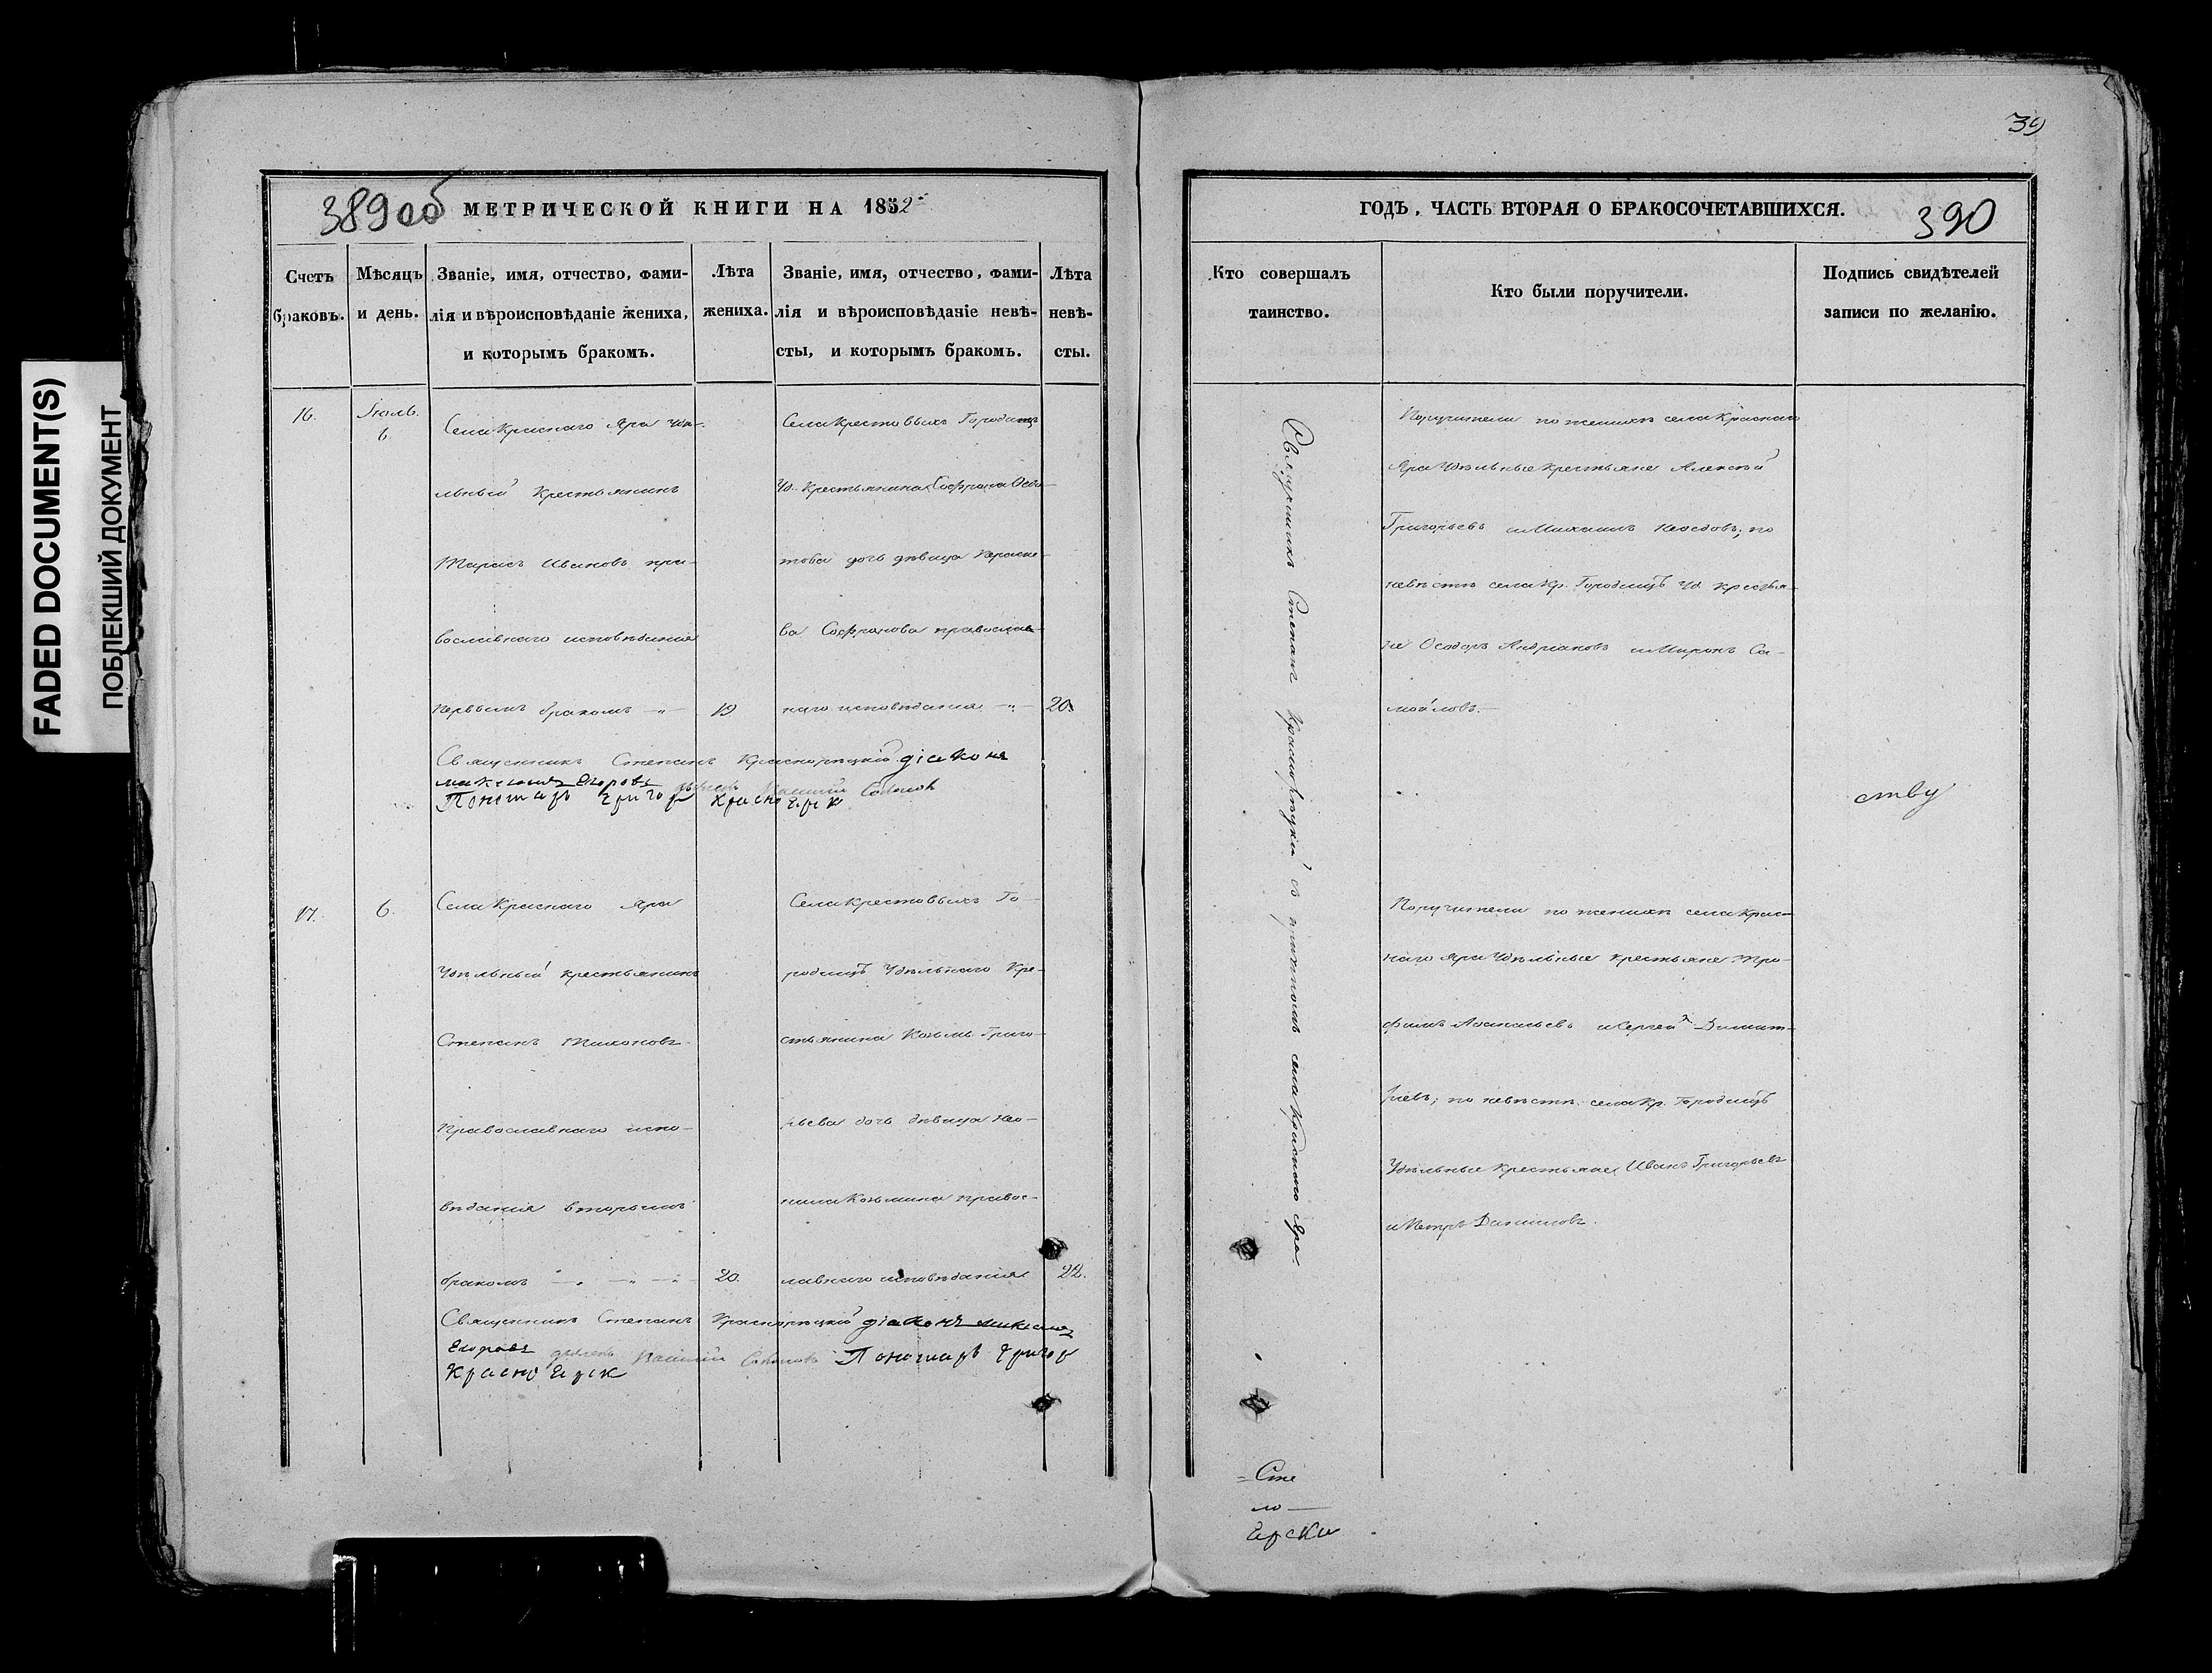 39
FADED DOCUMENT(S)
ПОБЛЕКШИЙ ДОКУМЕНТ
389об МЕТРИЧЕСКОЙ КНИГИ НА 1852
Счетъ браковъ.
Мѣсяцъ и день.
Званіе, имя, отчество, фами-
лія и вѣроисповѣданіе жениха,
и которымъ бракомъ.
Лѣта
жениха.
Званіе, имя, отчество, фами-
лія и вѣроисповѣданіе невѣ-
сты, и которымъ бракомъ.
Лѣта
невѣ-
сты.
16.
Іюль.
6.
Села Краснаго Яра Удѣ-
льный Крестьянинъ
Тарасъ Ивановъ пра-
вославнаго исповѣданія
первымъ бракомъ
19
Села Крестовыхъ Городищъ
Уд. Крестьянина Софрона Ѳедо-
това дочь дѣвица Параске-
ва Софронова православ-
наго исповѣданія
20.
Священникъ Степанъ Краснорѣцкій діаконъ
Максимъ Егоровъ
Пономарь Григор Красно Ярск
17.
6.
Села Краснаго Яра
Удѣльный крестьянинъ
Степанъ Тихоновъ
Православнаго испо-
вѣданія вторымъ
бракомъ
20.
Села Крестовыхъ Го-
родищъ Удѣльнаго Кре-
стьянина Козьмы Григо-
рьева дочь дѣвица Нео-
нила Козьмина правос-
лавнаго исповѣданія
22.
Священникъ Степанъ Краснорѣцкій діаконъ Максимъ
Егоровъ Пономарь Григор
Красно Ярск
ГОДЪ, ЧАСТЬ ВТОРАЯ О БРАКОСОЧЕТАВШИХСЯ. 390
Кто совершалъ
таинство.
Кто были поручители.
Подпись свидѣтелей
записи по желанію.
Священникъ Степанъ Краснорѣцкій съ причтомъ села Краснаго Яра.
Поручители по женихѣ села Краснаго
Яра Удѣльные крестьяне Алексѣй
Григорьевъ и Михаилъ по
невѣстѣ села Кр. Городищъ Уд. крестья-
не Ѳеодоръ Андріановъ и Миронъ Са-
мойловъ.
ству
Поручители по женихѣ села Крас-
наго Яра Удѣльные крестьяне Тро-
фимъ и Сергей Димит-
ріевъ; по невѣстѣ села Кр. Городищъ
Удѣльные крестьяне Иванъ Григорьевъ
и Петръ Даниловъ.
Сте
ло
Ярски